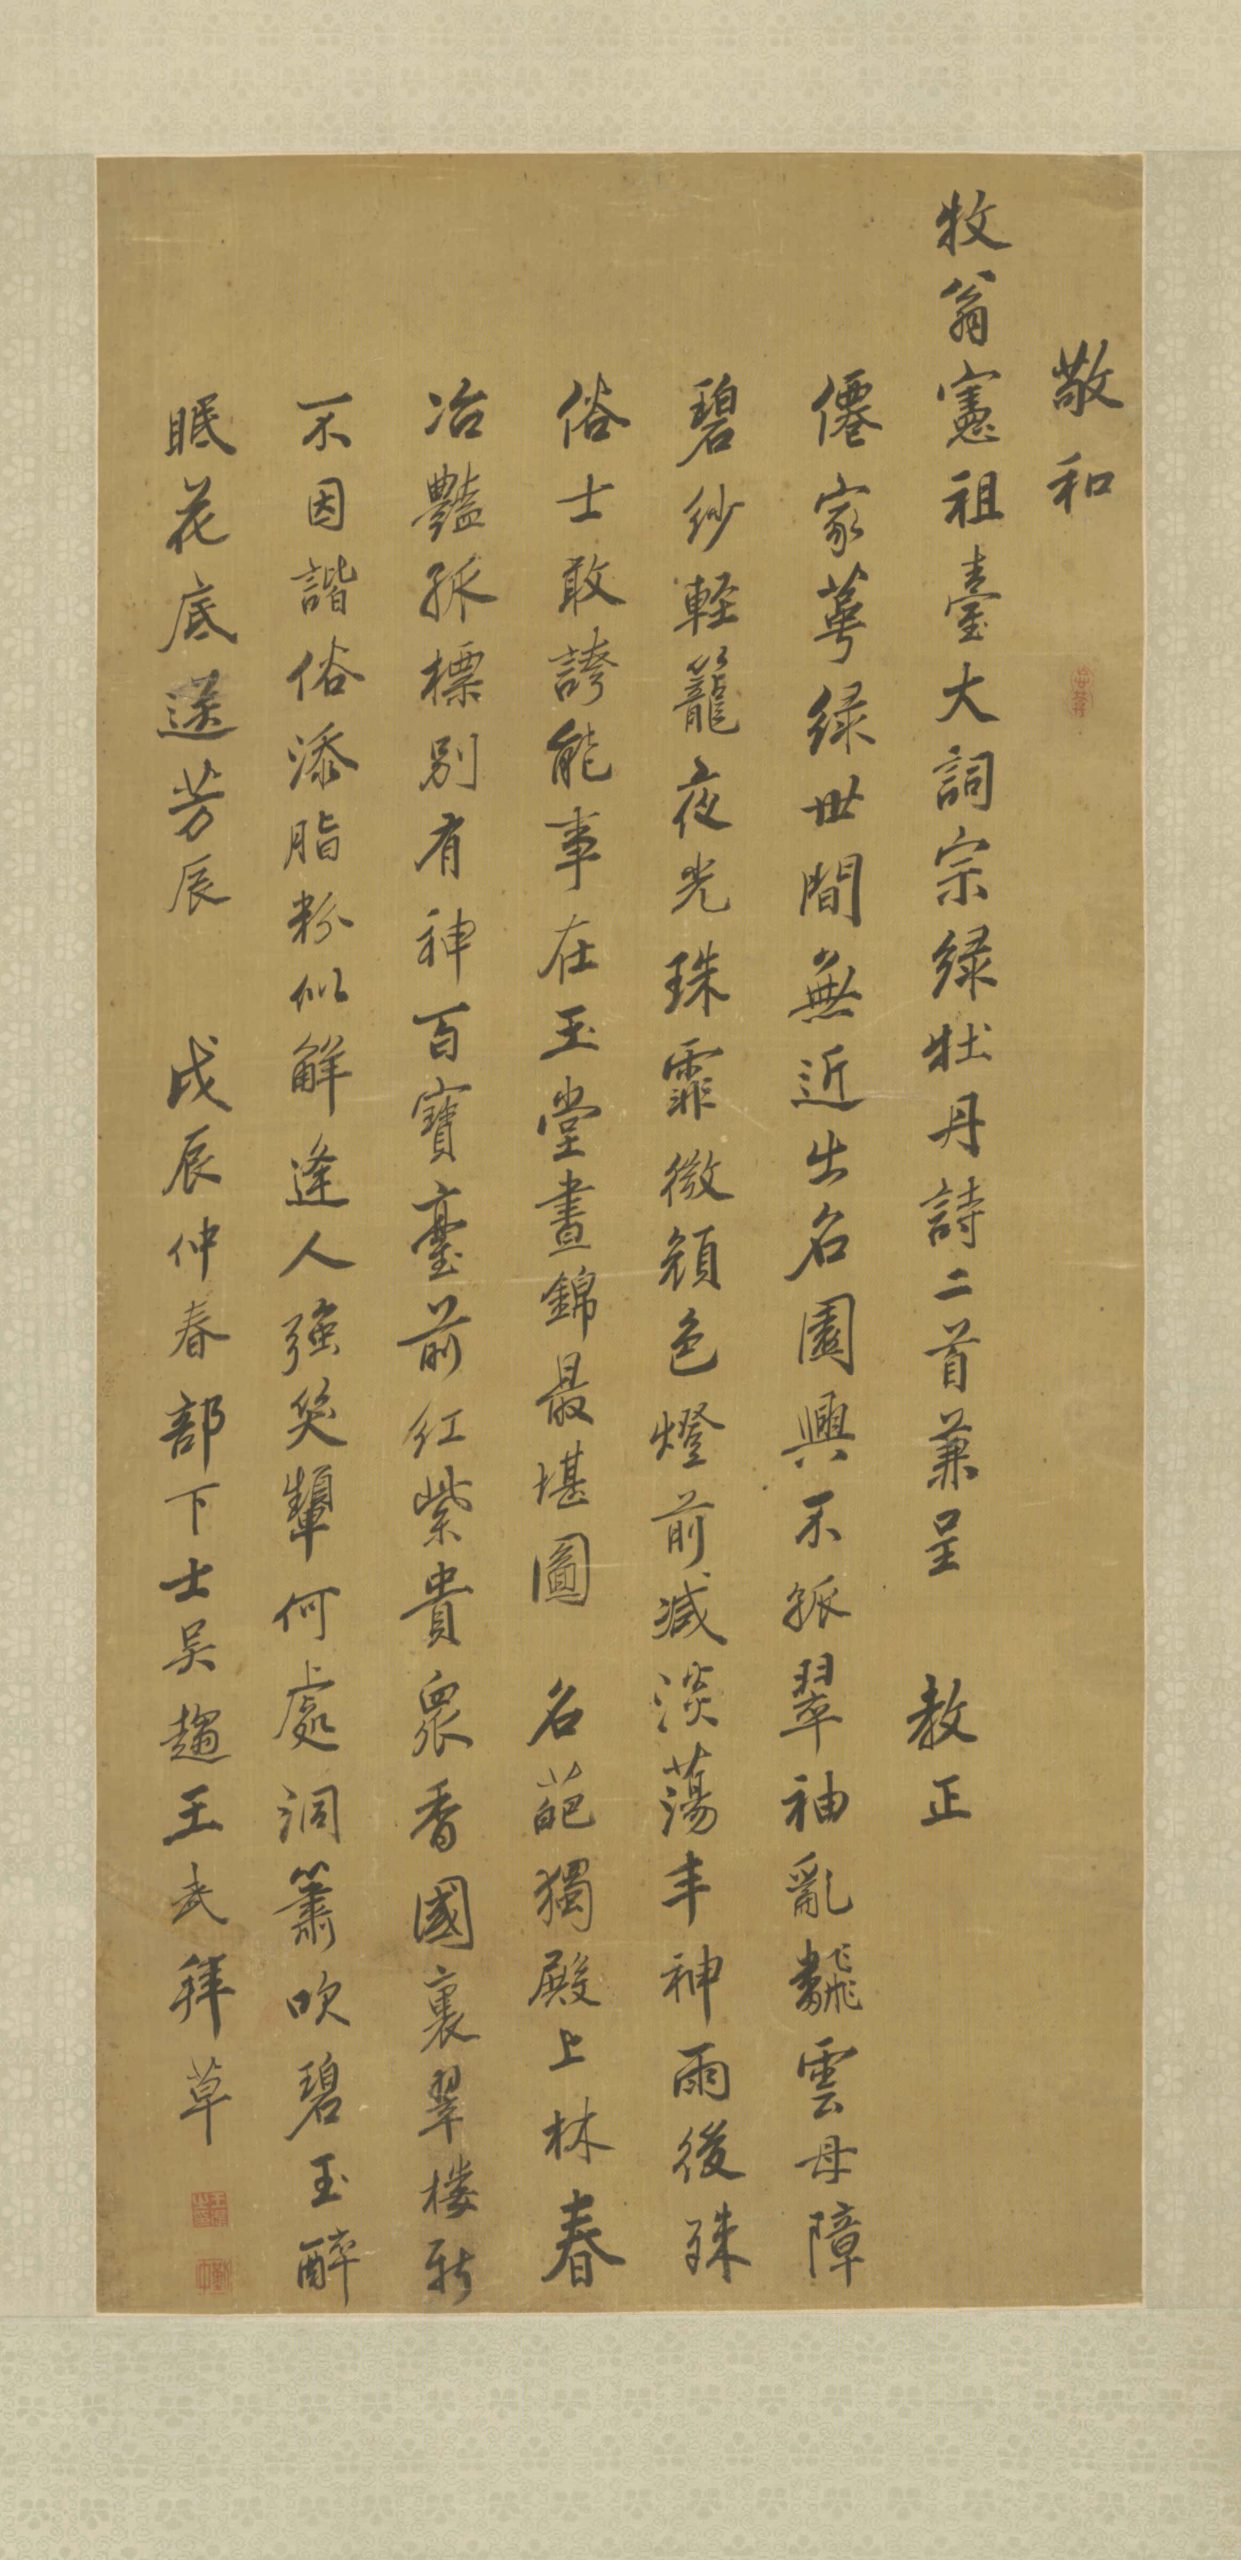 敬和
牧翁憲祖臺大詞宗綠牡丹詩二首兼呈 教正
僊家萼綠世間無近出名園興不孤翠袖亂翻雲母障
碧紗輕籠夜光珠霏微顏色燈前減淡蕩丰神雨後殊
俗士敢誇能事在玉堂晝錦最堪圖 名葩獨殿上林春
冶豔孤標別有神百寶臺前紅紫貴眾香國裏翠樓新
不因諧俗添脂粉似解逢人強笑顰何處洞簫吹碧玉醉
眠花底送芳辰 戊辰仲春部下士吳趨王武拜草